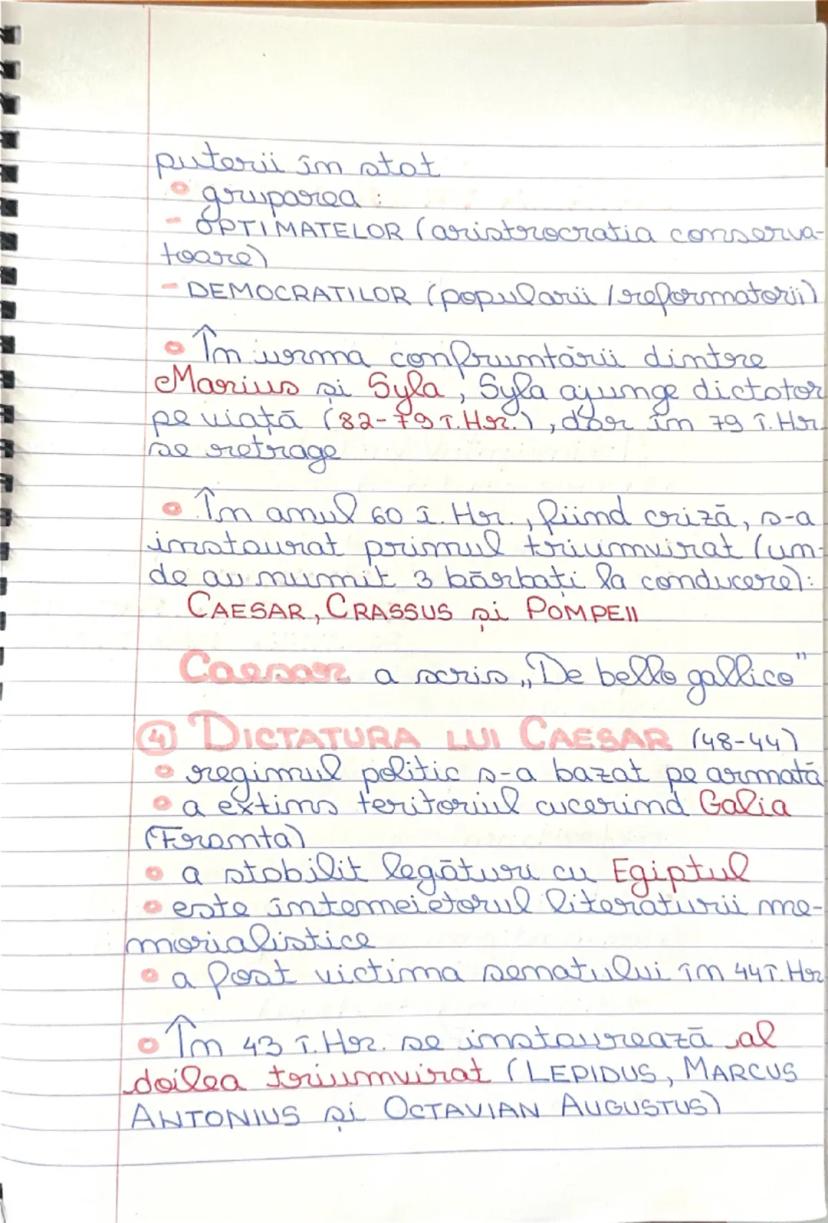 puterii în stat
• gruparea:
- OPTIMATELOR (aristrocratia conserva-
toare)
- DEMOCRATILOR (popularii / reformatorii)
• În urma confruntării dintre
Marius și Syla, Syla ajunge dictator
pe viață (82-79 î.Hr.), dar în 79 î.Hr
se retrage
• În anul 60 î. Hr., fiind criză, s-a
instaurat primul triumvirat (un-
de au numit 3 bărbați la conducere):
CAESAR, CRASSUS și POMPEII
Caesar a scris „De bello gallico"
④ DICTATURA LUI CAESAR (48-44)
• regimul politic s-a bazat pe armată
• a extins teritoriul cucerind Galia
(Franta)
• a stabilit legături cu Egiptul
• este întemeietorul literaturii me-
morialistice
• a fost victima senatului în 44 î.Hr
• În 43 î.Hr. se instaurează al
doilea triumvirat (LEPIDUS, MARCUS
ANTONIUS și OCTAVIAN AUGUSTUS)